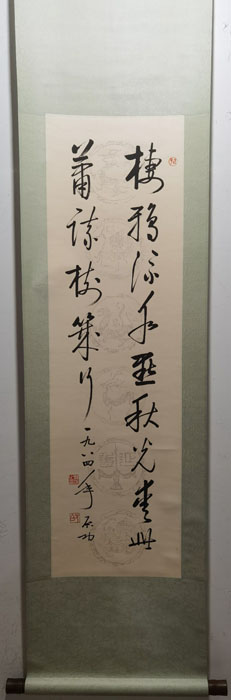 棲鴉流水點秋光愛此
蕭疏樹幾行一九八四年啟功